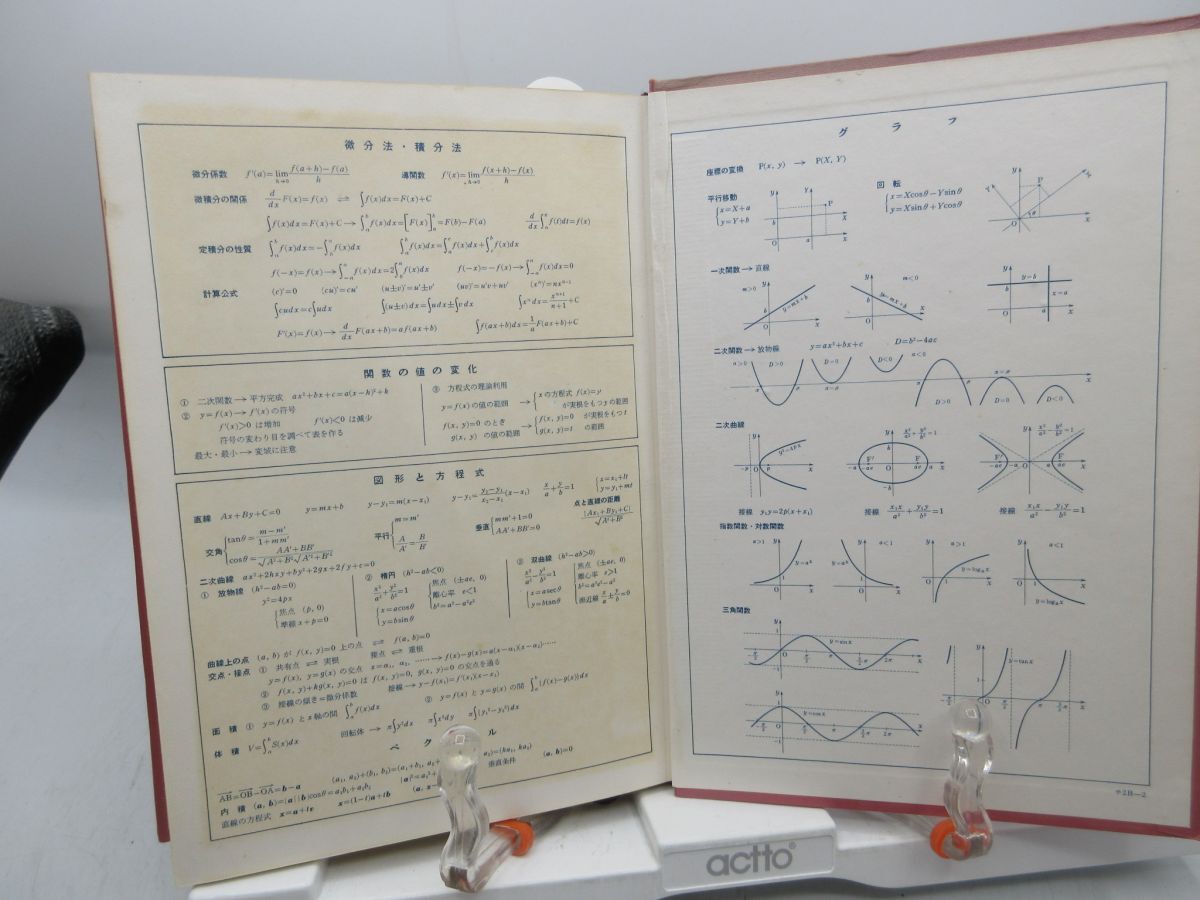 微分法・積分法
微分係数 f'(a)=lim h→0 f(a+h)−f(a)/h 導関数 f'(x)=lim h→0 f(x+h)−f(x)/h
微積分の関係 d/dx F(x)=f(x) ⇌ ∫f(x)dx=F(x)+C
∫f(x)dx=F(x)+C→∫_a^b f(x)dx=[F(x)]_a^b=F(b)−F(a) d/dx∫_a^x f(t)dt=f(x)
定積分の性質 ∫_a^b f(x)dx=−∫_b^a f(x)dx ∫_a^b f(x)dx=∫_a^c f(x)dx+∫_c^b f(x)dx
f(−x)=f(x)→∫_{−a}^a f(x)dx=2∫_0^a f(x)dx f(−x)=−f(x)→∫_{−a}^a f(x)dx=0
計算公式 (c)'=0 (cu)'=cu' (u±v)'=u'±v' (uv)'=u'v+uv' (xⁿ)'=nxⁿ⁻¹
∫cudx=c∫udx ∫(u±v)dx=∫udx±∫v dx ∫xⁿdx=xⁿ⁺¹/n+1+C
F'(x)=f(x)→d/dx F(ax+b)=af(ax+b) ∫f(ax+b)dx=1/a F(ax+b)+C
関数の値の変化
① 二次関数→平方完成 ax²+bx+c=a(x−h)²+k
② y=f(x)→f'(x)の符号
f'(x)>0 は増加 f'(x)<0 は減少
符号の変わり目を調べて表を作る
最大・最小→変域に注意
③ 方程式の理論利用
y=f(x)の値の範囲 → xの方程式 f(x)=y が実根をもつyの範囲
f(x, y)=0 のとき g(x, y) の値の範囲 → f(x, y)=0 g(x, y)=t が実根をもつtの範囲
図形と方程式
直線 Ax+By+C=0 y=mx+b y−y₁=m(x−x₁) y−y₁=y₂−y₁/x₂−x₁(x−x₁) x/a+y/b=1 x=x₁+lt y=y₁+mt
交角 tanθ=m−m'/1+mm' cosθ=AA'+BB'/√A²+B²√A'²+B'² 平行 m=m' A/A'=B/B' 垂直 mm'+1=0 AA'+BB'=0 点と直線の距離 |Ax₁+By₁+C|/√A²+B²
二次曲線 ax²+2hxy+by²+2gx+2fy+c=0
① 放物線 (h²−ab=0)
y²=4px
焦点 (p, 0)
準線 x+p=0
② 楕円 (h²−ab<0)
x²/a²+y²/b²=1
x=acosθ
y=bsinθ
焦点 (±ae, 0)
離心率 e<1
b²=a²−a²e²
③ 双曲線 (h²−ab>0)
x²/a²−y²/b²=1
x=asecθ
y=btanθ
焦点 (±ae, 0)
離心率 e>1
b²=a²e²−a²
漸近線 x/a±y/b=0
曲線上の点 (a, b) が f(x, y)=0 上の点 ⇌ f(a, b)=0
交点・接点 ① 共有点 ⇌ 実根 接点 ⇌ 重根
y=f(x), y=g(x) の交点 x=α₁, α₂, ……→f(x)−g(x)=a(x−α₁)(x−α₂)……
② f(x, y)+kg(x, y)=0 は f(x, y)=0, g(x, y)=0 の交点を通る
③ 接線の傾き=微分係数 接線→y−f(x₁)=f'(x₁)(x−x₁)
面積 ① y=f(x) と x軸の間 ∫_a^b f(x)dx ② y=f(x) と y=g(x) の間 ∫_a^b{f(x)−g(x)}dx
体積 V=∫_a^b S(x)dx 回転体→ π∫y²dx π∫x²dy π∫(y₁²−y₂²)dx
ベク ル
(a₁, a₂)+(b₁, b₂)=(a₁+b₁, a₂
a₂)=(ka₁, ka₂)
AB=OB−OA=b−a
垂直条件 (a, b)=0
内積 (a, b)=|a||b|cosθ=a₁b₁+a₂b₂
直線の方程式 x=a+te x=(1−t)a+tb (a, x−
グラフ
座標の変換 P(x, y) → P(X, Y)
平行移動
x=X+a
y=Y+b
回転
x=Xcosθ−Ysinθ
y=Xsinθ+Ycosθ
一次関数→直線
m>0 y=mx+b m<0 y=mx+b y=b x=a
二次関数→放物線 y=ax²+bx+c D=b²−4ac
a>0 D>0 D=0 D<0 a<0
D>0 D=0 D<0
二次曲線
y²=4px x²/a²+y²/b²=1 x²/a²−y²/b²=1
接線 y₁y=2p(x+x₁) 接線 x₁x/a²+y₁y/b²=1 接線 x₁x/a²−y₁y/b²=1
指数関数・対数関数
a>1 y=aˣ a<1 y=aˣ a>1 y=logₐx a<1 y=logₐx
三角関数
y=sinx
y=tanx
y=cosx
テ2B—2
actto